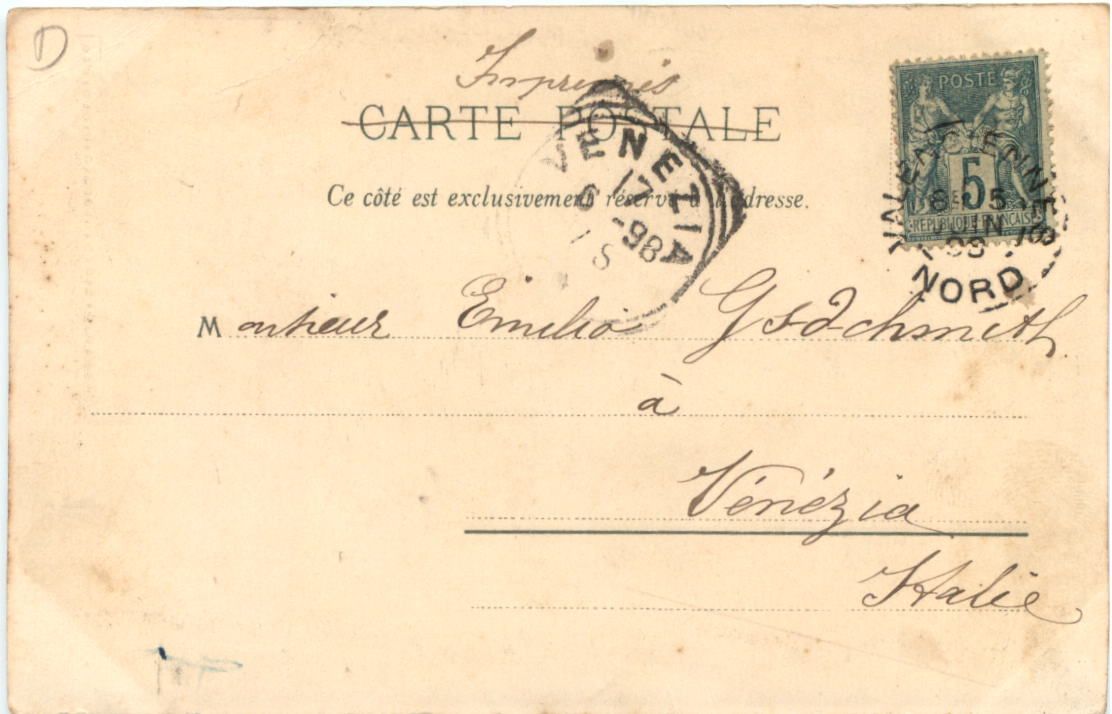 D
Imprimés
CARTE POSTALE
Ce côté est exclusivement réservé à l'adresse.
VENEZIA
17
6 -98
POSTE
5
REPUBLIQUE FRANÇAISE
VALENCIENNES
JUIN
98
NORD
Monsieur Emilio
à
Vénézia
Italie